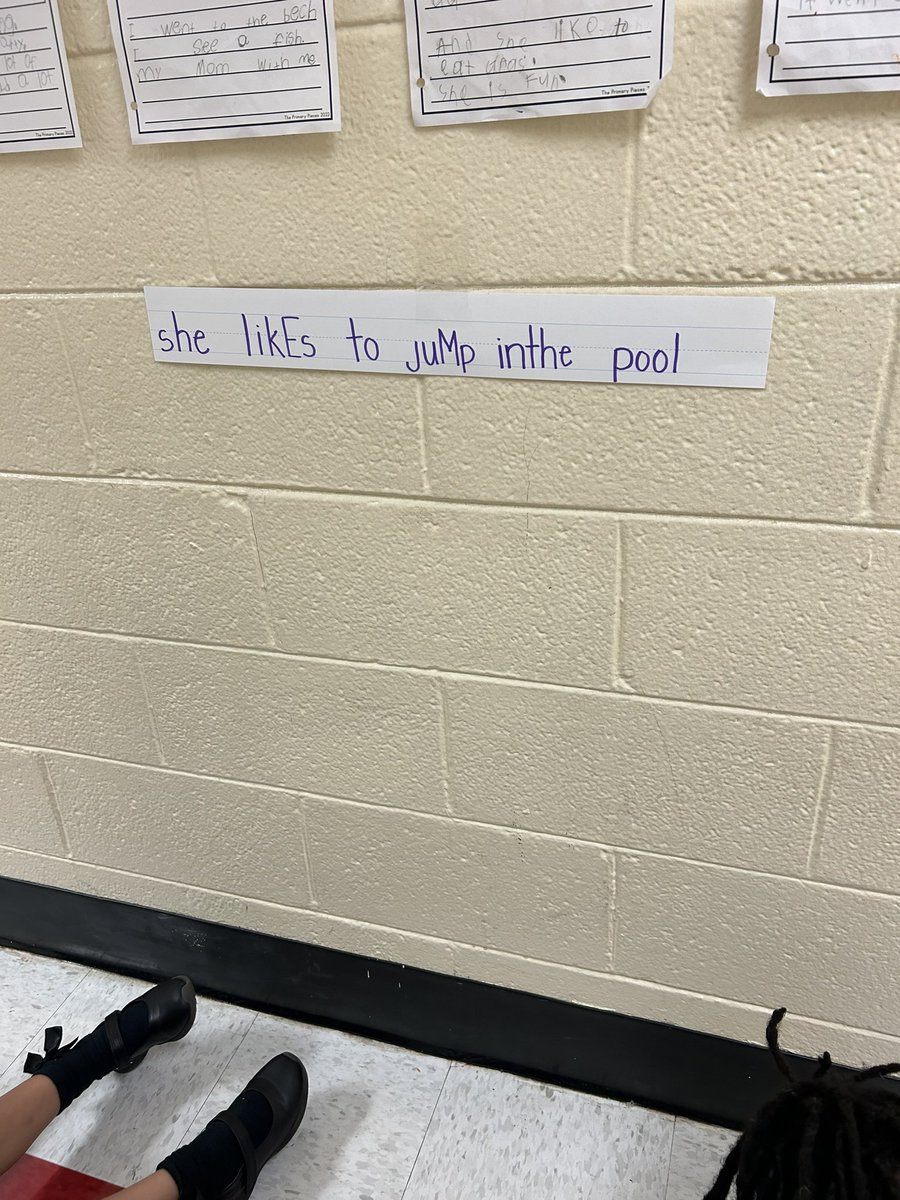 lot of
a lot
The Primary Pieces 2022
I went to the bech
I see a fish.
my Mom with me
The Primary Pieces 2022
And she like to
eat
She is fun.
The Primary Pieces
It went
she likEs to juMp inthe pool